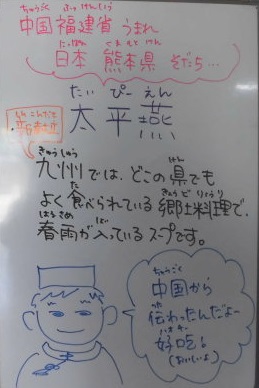 ちゅうごく ふっけんしょう
中国福建省 うまれ
にっぽん くまもと けん
日本 熊本県 そだち…
たい ぴー えん
太平燕
しんこんだて
新献立
きゅうしゅう けん
九州では、どこの県でも
た きょうどりょうり
よく食べられている郷土料理で、
はるさめ はい
春雨が入っているスープです。
ちゅうごく
中国から
つた
伝わったんだよー
好吃!
(おいしいよ)